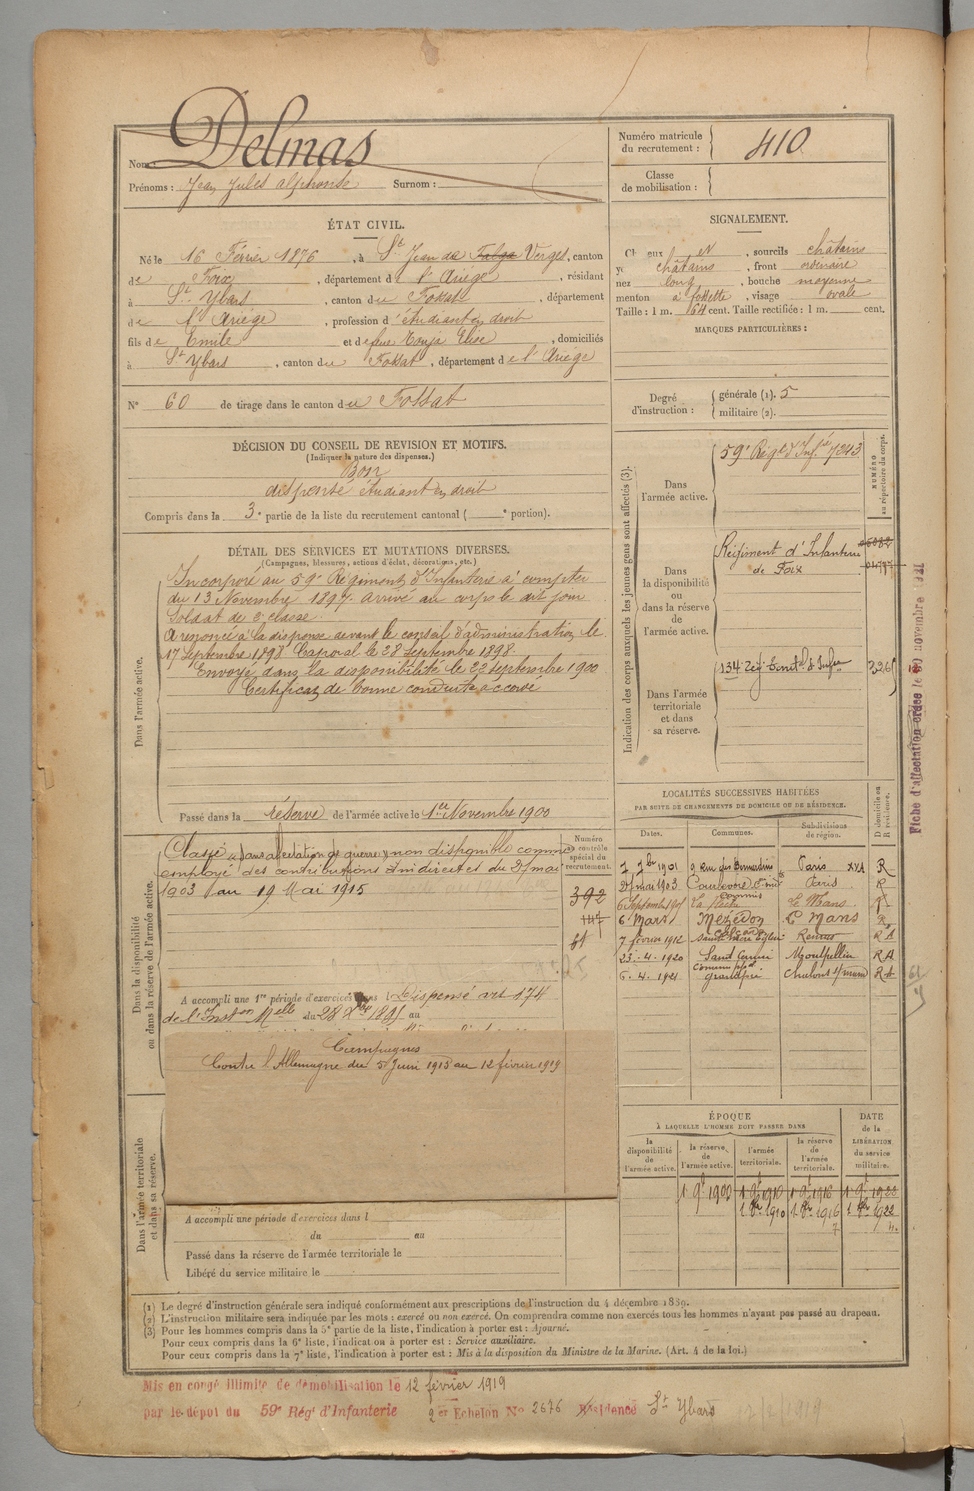 Nom : Delmas
Prénoms : Jean Jules alphonse Surnom :
Numéro matricule du recrutement : 410
Classe de mobilisation :
ÉTAT CIVIL.
Né le 16 Février 1876, à St Jean de Falga Verges, canton
de Foix, département d l'Ariège, résidant
à St Ybars, canton du Fossat, département
de l'Ariège, profession d'étudiant en droit
fils de Emile et de feue Elise, domiciliés
à St Ybars, canton du Fossat, département de l'Ariège
N° 60 de tirage dans le canton du Fossat
SIGNALEMENT.
sourcils châtains
châtains, front ordinaire
nez long, bouche moyenne
menton à fossette, visage ovale
Taille : 1 m. 64 cent. Taille rectifiée : 1 m. cent.
MARQUES PARTICULIÈRES :
Degré d'instruction : générale (1). 5
militaire (2).
DÉCISION DU CONSEIL DE REVISION ET MOTIFS.
(Indiquer la nature des dispenses.)
Bon
dispensé étudiant en droit
Compris dans la 3e partie de la liste du recrutement cantonal ( e portion).
DÉTAIL DES SERVICES ET MUTATIONS DIVERSES.
(Campagnes, blessures, actions d'éclat, décorations, etc.)
Dans l'armée active.
Incorporé au 59e Régiment d'Infanterie à compter
du 13 Novembre 1897. arrivé au corps le dit jour
Soldat de 2e classe.
A renoncé à la dispense devant le conseil d'administration le
17 septembre 1898 Caporal le 28 septembre 1898.
Envoyé dans la disponibilité le 22 septembre 1900
Certificat de bonne conduite accordé
Passé dans la réserve de l'armée active le 1er Novembre 1900
Indication des corps auxquels les jeunes gens sont affectés (3).
NUMÉRO au répertoire du corps.
Dans l'armée active.
59e Régt d'Infrie 7243
Dans la disponibilité ou dans la réserve de l'armée active.
Régiment d'Infanterie
de Foix
Dans l'armée territoriale et dans sa réserve.
134e Régt Territal d'Infie
Fiche d'affectation créée le novembre 1921
LOCALITÉS SUCCESSIVES HABITÉES
PAR SUITE DE CHANGEMENTS DE DOMICILE OU DE RÉSIDENCE.
Dates. Communes. Subdivisions de région. D domicile ou R résidence.
7 7bre 1901 9 rue des Bernardins Paris XXA R
27 mai 1903 Paris R
6 Septembre La flèche Le Mans R
6 Mars Mézidon Le Mans R
7 février 1912 Rennes R A
23.4.1920 Montpellier R A
6.4.1921 Grandpré Chalons s/marne R A
Dans la disponibilité ou dans la réserve de l'armée active.
Numéro au contrôle spécial du recrutement.
Classé "sans affectation de guerre" non disponible comme
employé des contributions indirectes du 27 mai
1903 au 19 Mai 1915
392
147
A accompli une 1re période d'exercices dans l Dispensé art 174
de l'Inston Melle du 28 Xbre 1895 au
Campagnes
Contre l'Allemagne du 5 Juin 1915 au 12 février 1919
Dans l'armée territoriale et dans sa réserve.
A accompli une période d'exercices dans l
du au
Passé dans la réserve de l'armée territoriale le
Libéré du service militaire le
ÉPOQUE
À LAQUELLE L'HOMME DOIT PASSER DANS
DATE de la LIBÉRATION du service militaire.
la disponibilité de l'armée active. la réserve de l'armée active. l'armée territoriale. la réserve de l'armée territoriale.
1 9bre 1900 1 9bre 1910 1 9bre 1916 1 9bre 1922
1 8bre 1910 1 8bre 1916 1 8bre 1922
(1) Le degré d'instruction générale sera indiqué conformément aux prescriptions de l'instruction du 4 décembre 1889.
(2) L'instruction militaire sera indiquée par les mots : exercé ou non exercé. On comprendra comme non exercés tous les hommes n'ayant pas passé au drapeau.
(3) Pour les hommes compris dans la 5e partie de la liste, l'indication à porter est : Ajourné.
Pour ceux compris dans la 6e liste, l'indication à porter est : Service auxiliaire.
Pour ceux compris dans la 7e liste, l'indication à porter est : Mis à la disposition du Ministre de la Marine. (Art. 4 de la loi.)
Mis en congé illimité de démobilisation le 12 février 1919
par le dépôt du 59e Régt d'Infanterie 2e Echelon N° 2676 Résidence St Ybars